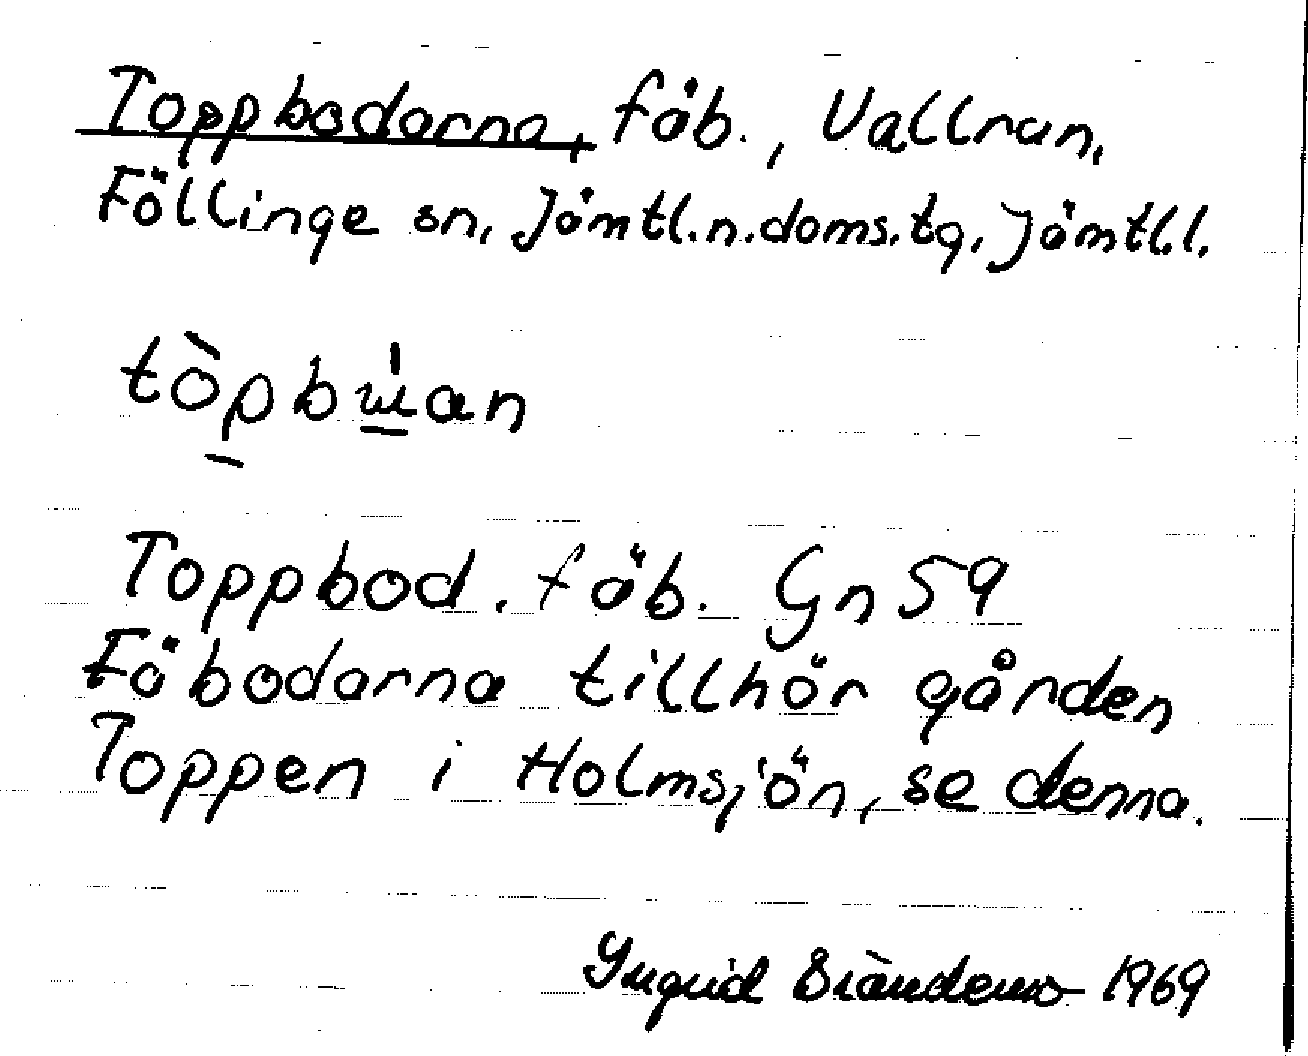 Toppbodarna, fäb., Vallrun,
Föllinge sn, Jämtl.n.doms.tg, Jämtl.l.
tòpbɯ̍an
Toppbod. fäb. Gn 59
Fäbodarna tillhör gården
Toppen i Holmsjön, se denna.
Yngrid Brändemo 1969